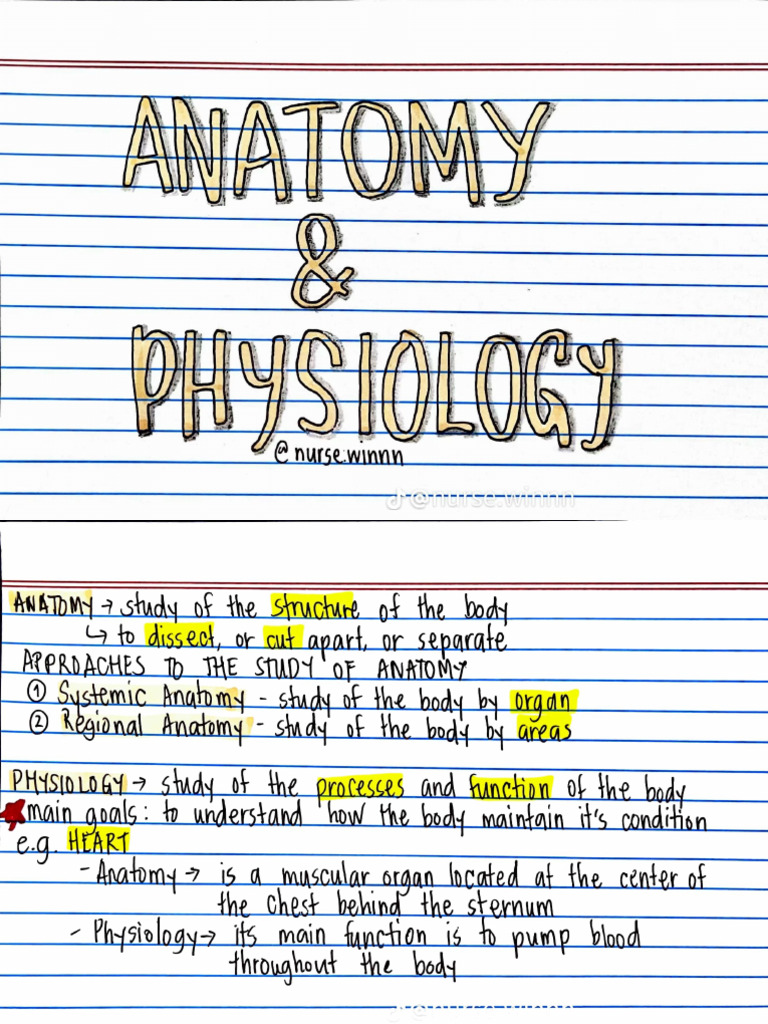 ANATOMY
&
PHYSIOLOGY
@nurse.winnn
@nurse.winnn
ANATOMY → study of the structure of the body
↳ to dissect, or cut apart, or separate
APPROACHES TO THE STUDY OF ANATOMY
① Systemic Anatomy - study of the body by organ
② Regional Anatomy - study of the body by areas
PHYSIOLOGY → study of the processes and function of the body
★main goals: to understand how the body maintain it's condition
e.g. HEART
- Anatomy → is a muscular organ located at the center of
the chest behind the sternum
- Physiology → its main function is to pump blood
throughout the body
@nurse.winnn